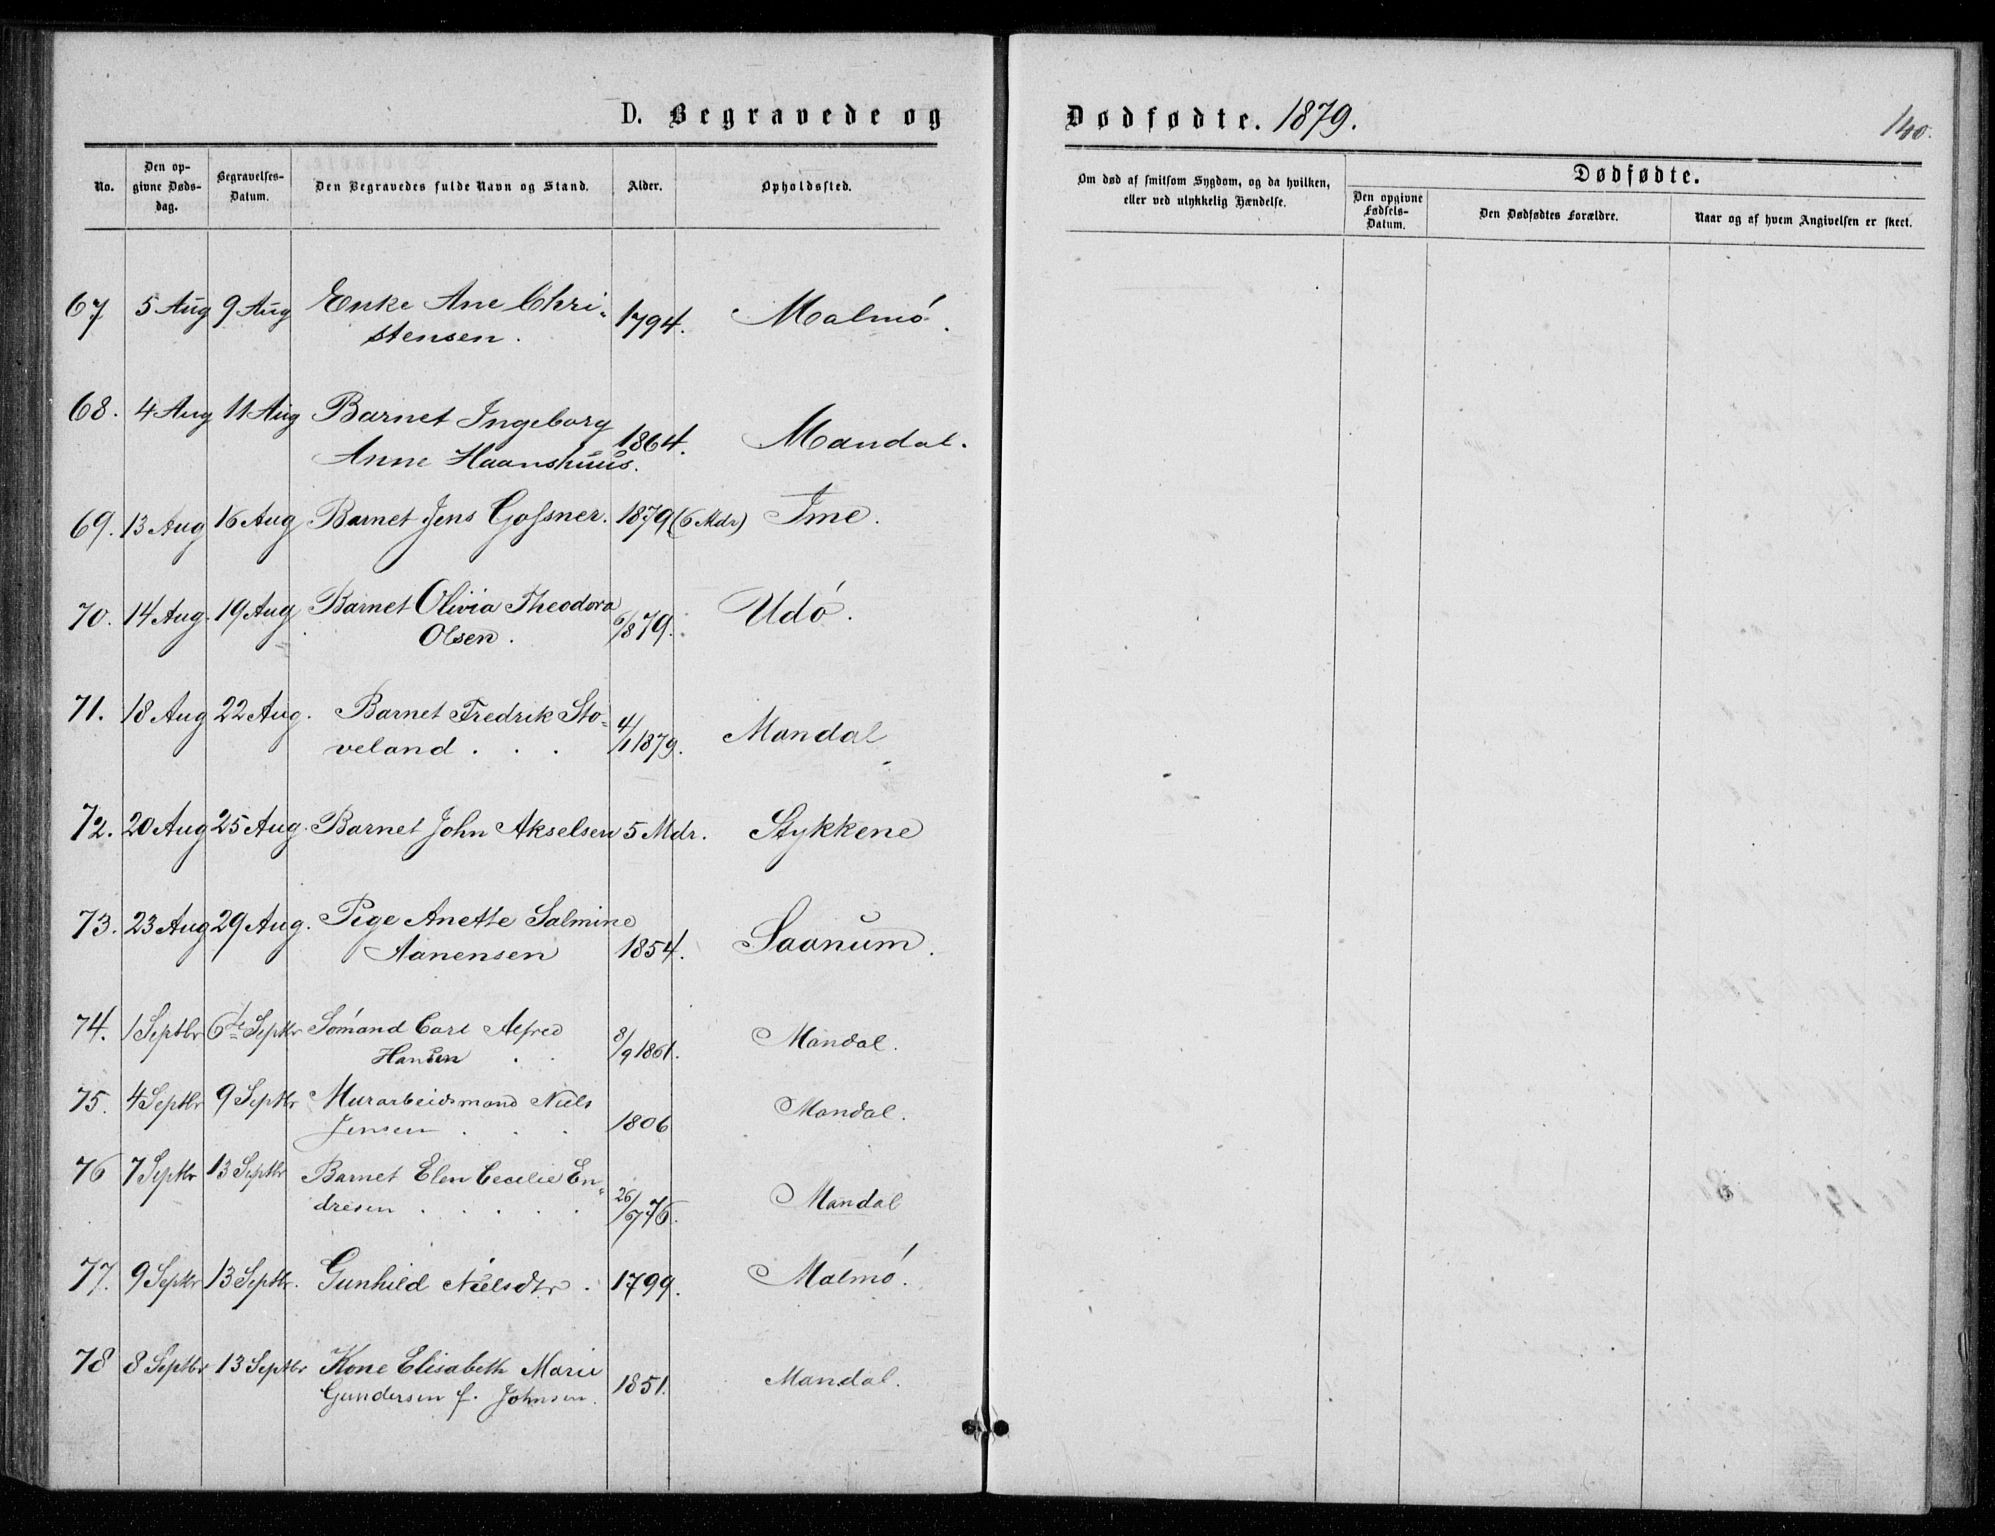 D. Begravede og
No.
Den op-
givne Døds-
dag.
Begravelses-
Datum.
Den Begravedes fulde Navn og Stand.
Alder.
Opholdssted.
67 5 Aug 9 Aug Enke Ane Chri- 1794. Malmö.
stensen.
68. 4 Aug 11 Aug Barnet Ingeborg 1864. Mandal.
Anne Haanshuus.
69. 13 Aug 16 Aug Barnet Jens Gossner. 1879 (6 Mdr) Ime.
70. 14 Aug. 19 Aug Barnet Olivia Theodora 6/8 79. Udö.
Olsen.
71. 18 Aug 22 Aug. Barnet Fredrik Sto- 4/1 1879. Mandal
veland . . .
72. 20 Aug 25 Aug. Barnet John Akselsen 5 Mdr. Stykkene
73. 23 Aug 29 Aug. Pige Anette Salmine 1854. Saanum.
Aanensen
74. 1 Septbr 6te Septbr Sömand Carl Alfred 8/9 1861. Mandal.
Hansen . .
75. 4 Septbr 9 Septbr Murarbeidsmand Niels 1806 Mandal.
Jensen . . .
76 7 Septbr 13 Septbr Barnet Elen Cecilie En- 26/6 76. Mandal
dresen . . . . .
77. 9 Septbr 13 Septbr. Gunhild Nielsdtr. 1799. Malmö.
78 8 Septbr 13 Septbr Kone Elisabeth Marie 1851. Mandal.
Gundersen f. Johnsen.
Dødfødte. 1879.
140.
Om død af smitsom Sygdom, og da hvilken,
eller ved ulykkelig Hændelse.
Dødfødte.
Den opgivne
Fødsels-
Datum.
Den Dødfødtes Forældre.
Naar og af hvem Angivelsen er skeet.